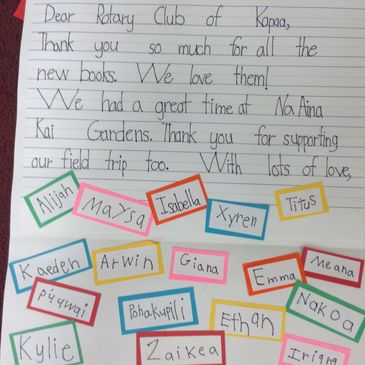 Dear Rotary Club of Kapaa,
Thank you so much for all the
new books. We love them!
We had a great time at Na Aina
Kai Gardens. Thank you for supporting
our field trip too. With lots of love,
Alijah
Maysa
Isabella
Xyren
Titus
Kaeden
Arwin
Giana
Emma
Meana
Pohakupili
Ethan
Nakoa
Kylie
Zaikea